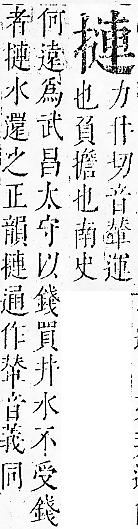 摙
力什切音輦運
也負擔也南史
何遠為武昌太守以錢買井水不受錢
者摙水還之正韻摙通作輦音義同